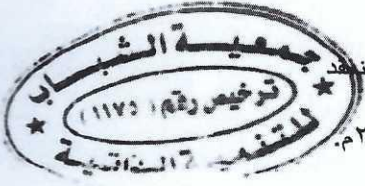 جمعية الشباب
ترخيص رقم (١١٧٥)
للتنمية الذاتية
٢م.